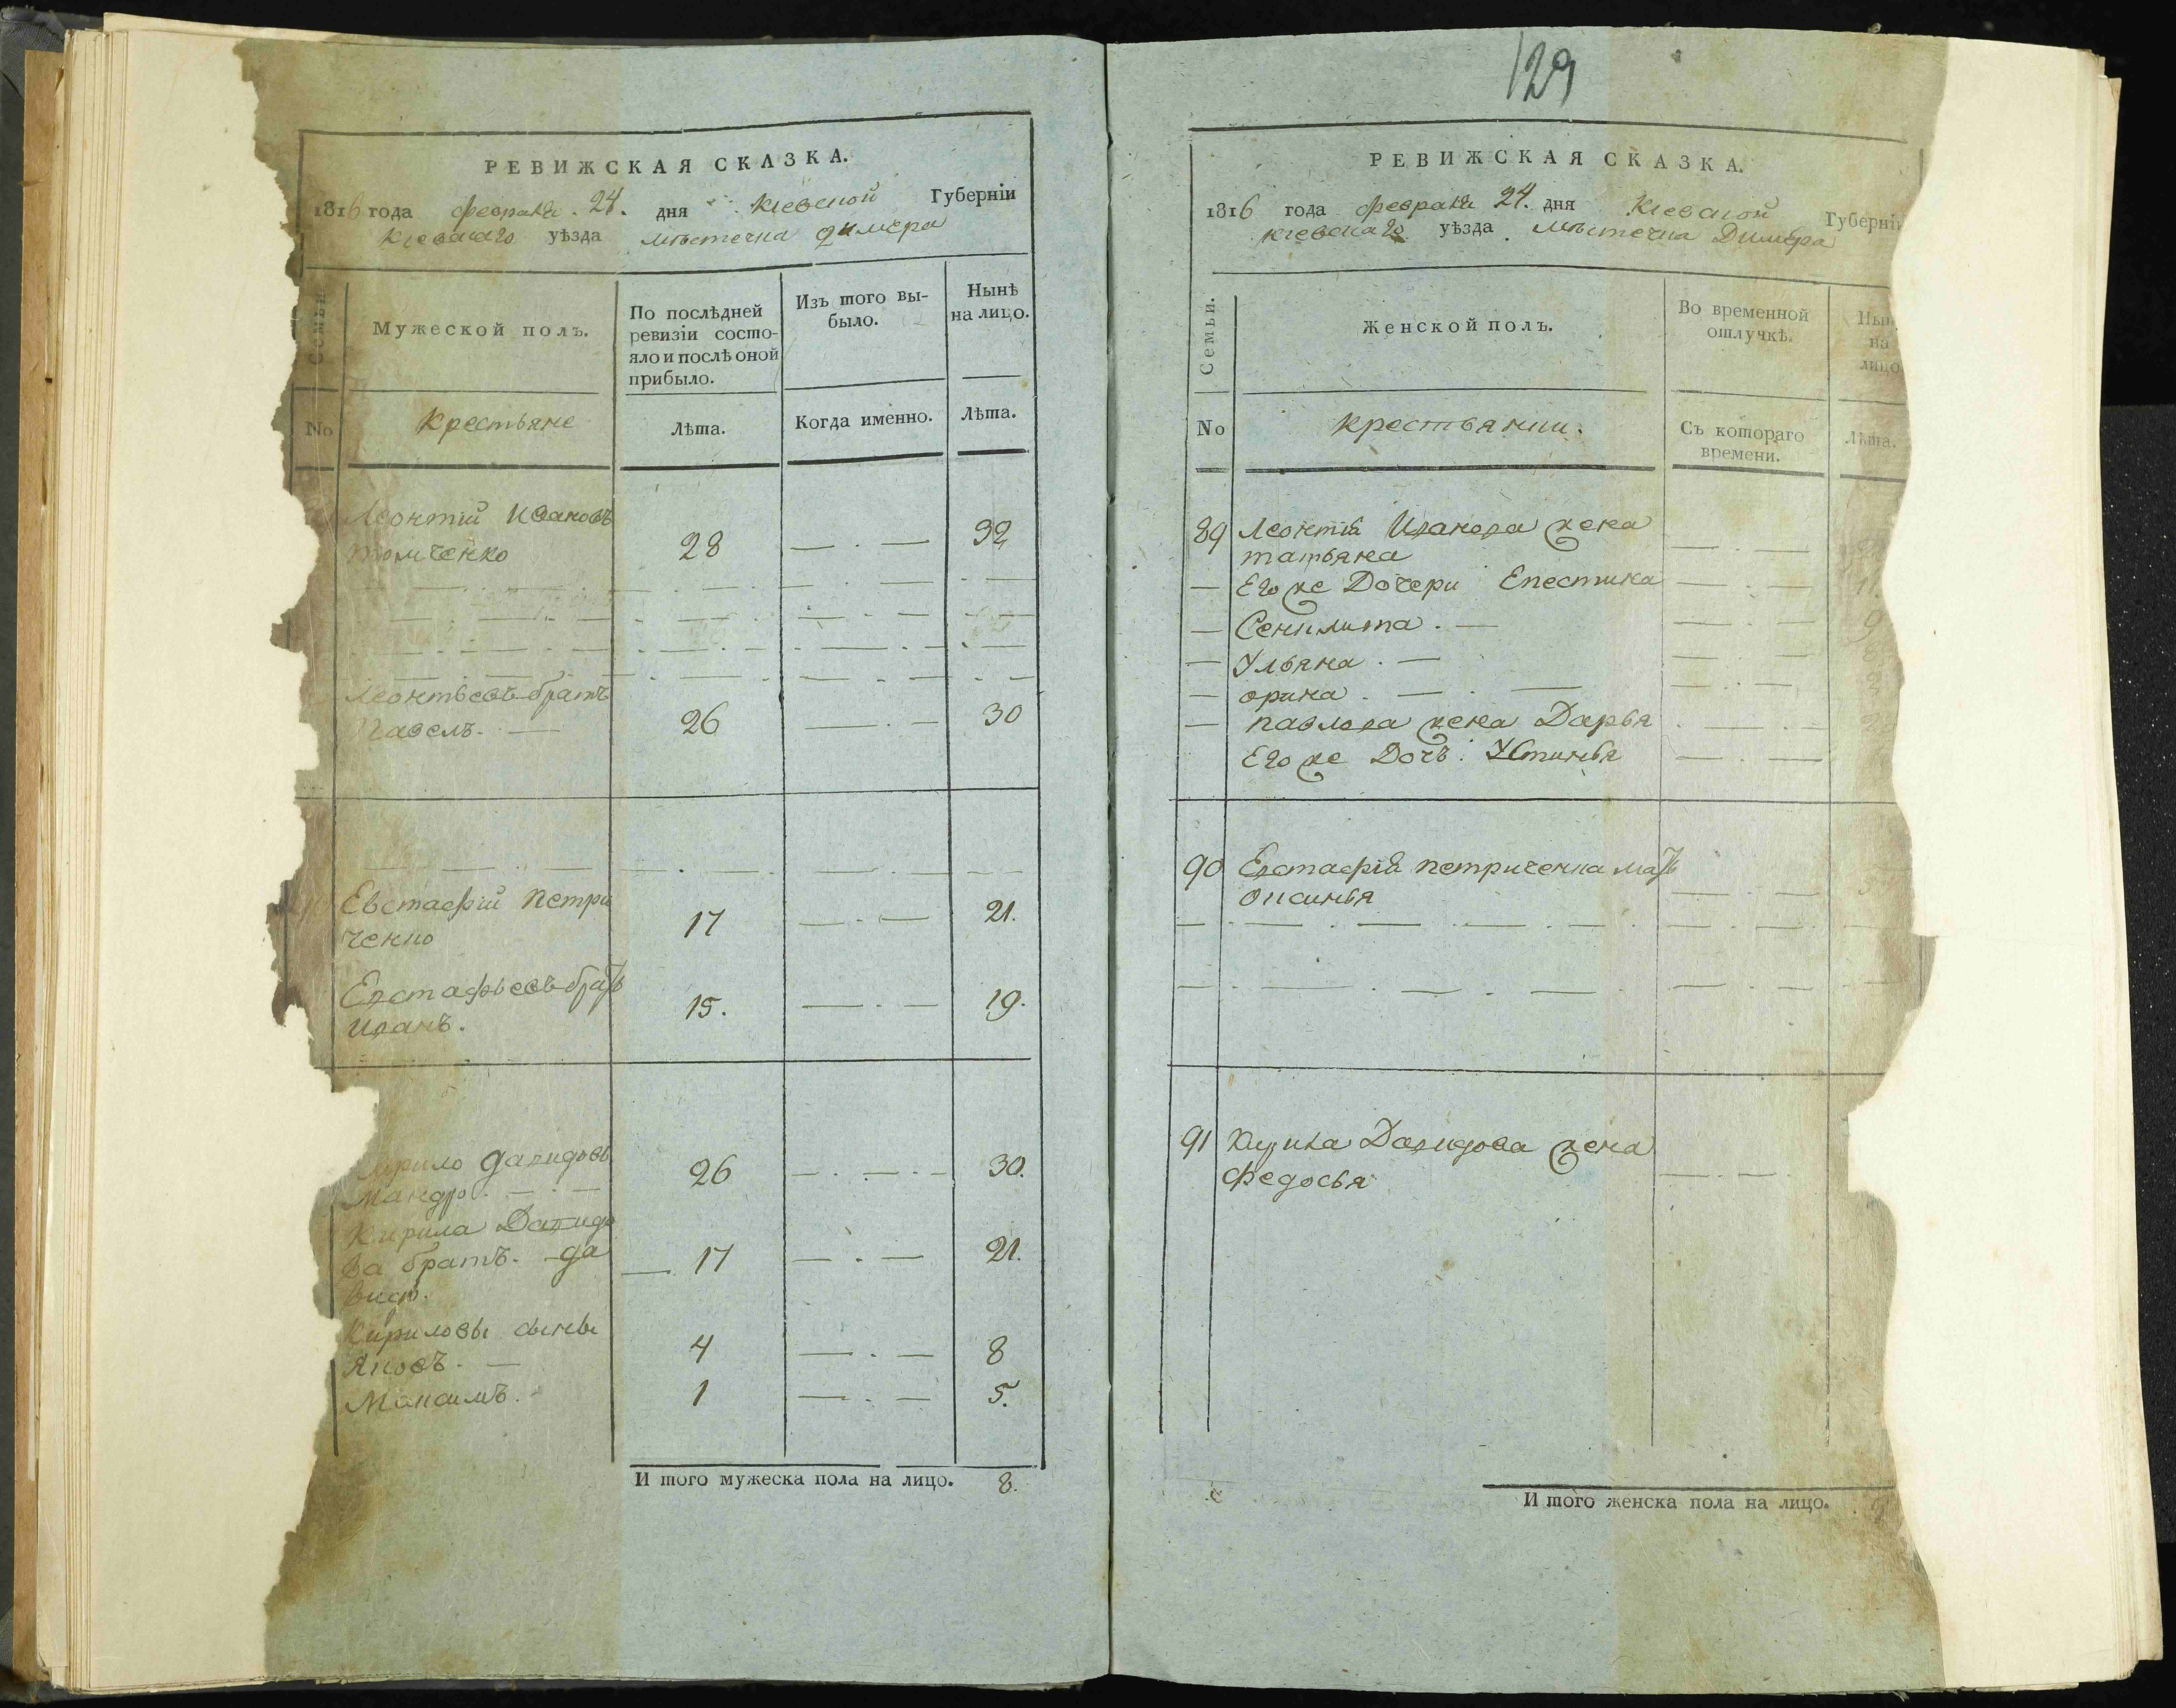 РЕВИЖСКАЯ СКАЗКА.
1816 года февраля 24. дня Кіевской Губерніи
Кіевскаго уѣзда мѣстечка димера
Семьи
Мужеской полъ.
По послѣдней
ревизіи состо-
яло и послѣ оной
прибыло.
Изъ того вы-
было.
Нынѣ
на лицо.
No
крестьяне
Лѣта.
Когда именно.
Лѣта.
Леонтій Ивановъ
томченко 28 — . — 32
Леонтьевъ братъ
Павелъ. — 26 — . — 30
Евстафій петри
ченко 17 — . — 21.
Евстафьевъ братъ
Иванъ. 15. — . — 19.
Кирило давидовъ
Мандро. — . — 26 — . — . - 30.
Кирила Давидо
ва братъ. да
видъ. 17 — . — 21.
Кириловы сыны
Яковъ. — 4 — . — 8
Максимъ. 1 — . — 5.
И того мужеска пола на лицо. 8.
129
РЕВИЖСКАЯ СКАЗКА.
1816 года февраля 24. дня Кіевской Губерніи
Кіевскаго уѣзда мѣстечка Димера
Семьи.
Женской полъ.
Во временной
отлучкѣ.
Нын
на
лицо
No
крестьянки.
Съ котораго
времени.
Лѣта.
89 Леонтія Иванова жена
татьяна — . —
— Его же Дочери Епестика — . — 11
— Сенклита . — — . — 9
— Ульяна . — — . —
— орина . — . — — . —
— павлова жена Дарья — . —
Его же Дочь. Устинья — . —
90 Евстафія петриченка мать
оксинья — . —
91 Кирила Давидова жена
Федосья — . —
И того женска пола на лицо.